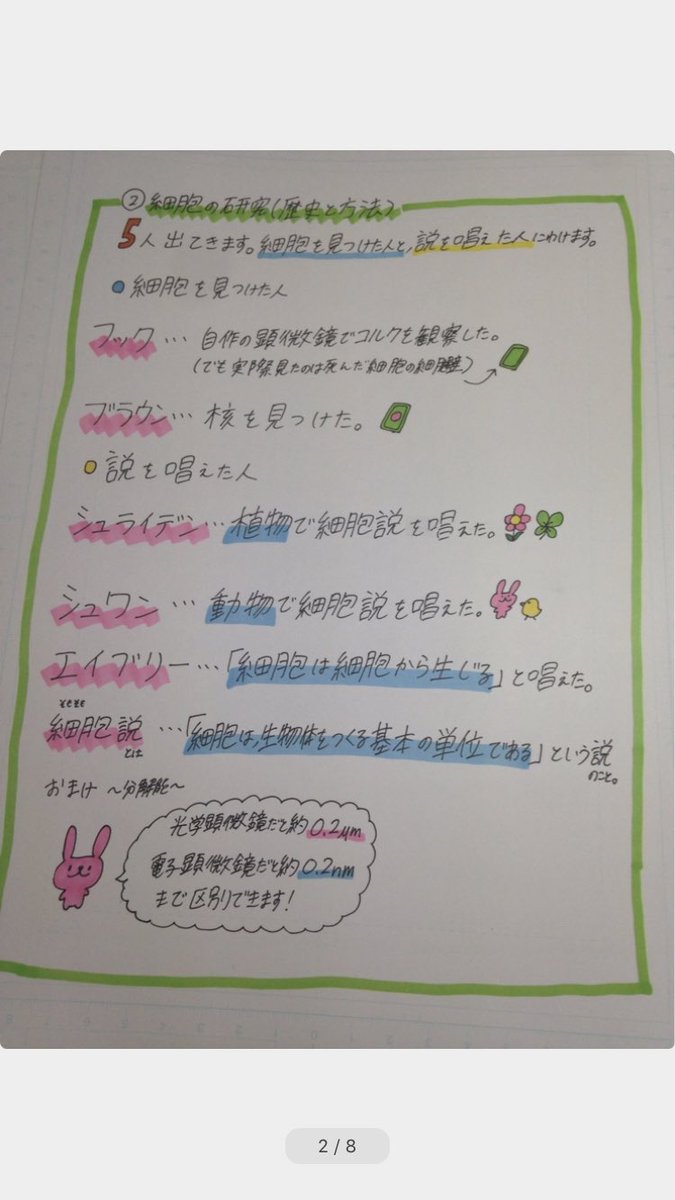 ②細胞の研究(歴史と方法)
5人出てきます。細胞を見つけた人と、説を唱えた人にわけます。
細胞を見つけた人
フック… 自作の顕微鏡でコルクを観察した。
(でも実際見たのは死んだ細胞の細胞壁)
ブラウン… 核を見つけた。
説を唱えた人
シュライデン… 植物で細胞説を唱えた。
シュワン… 動物で細胞説を唱えた。
エイブリー…「細胞は細胞から生じる」と唱えた。
そもそも
細胞説とは…「細胞は、生物体をつくる基本の単位である」という説のこと。
おまけ 〜分解能〜
光学顕微鏡だと約0.2μm
電子顕微鏡だと約0.2nm
まで区別できます!
2 / 8